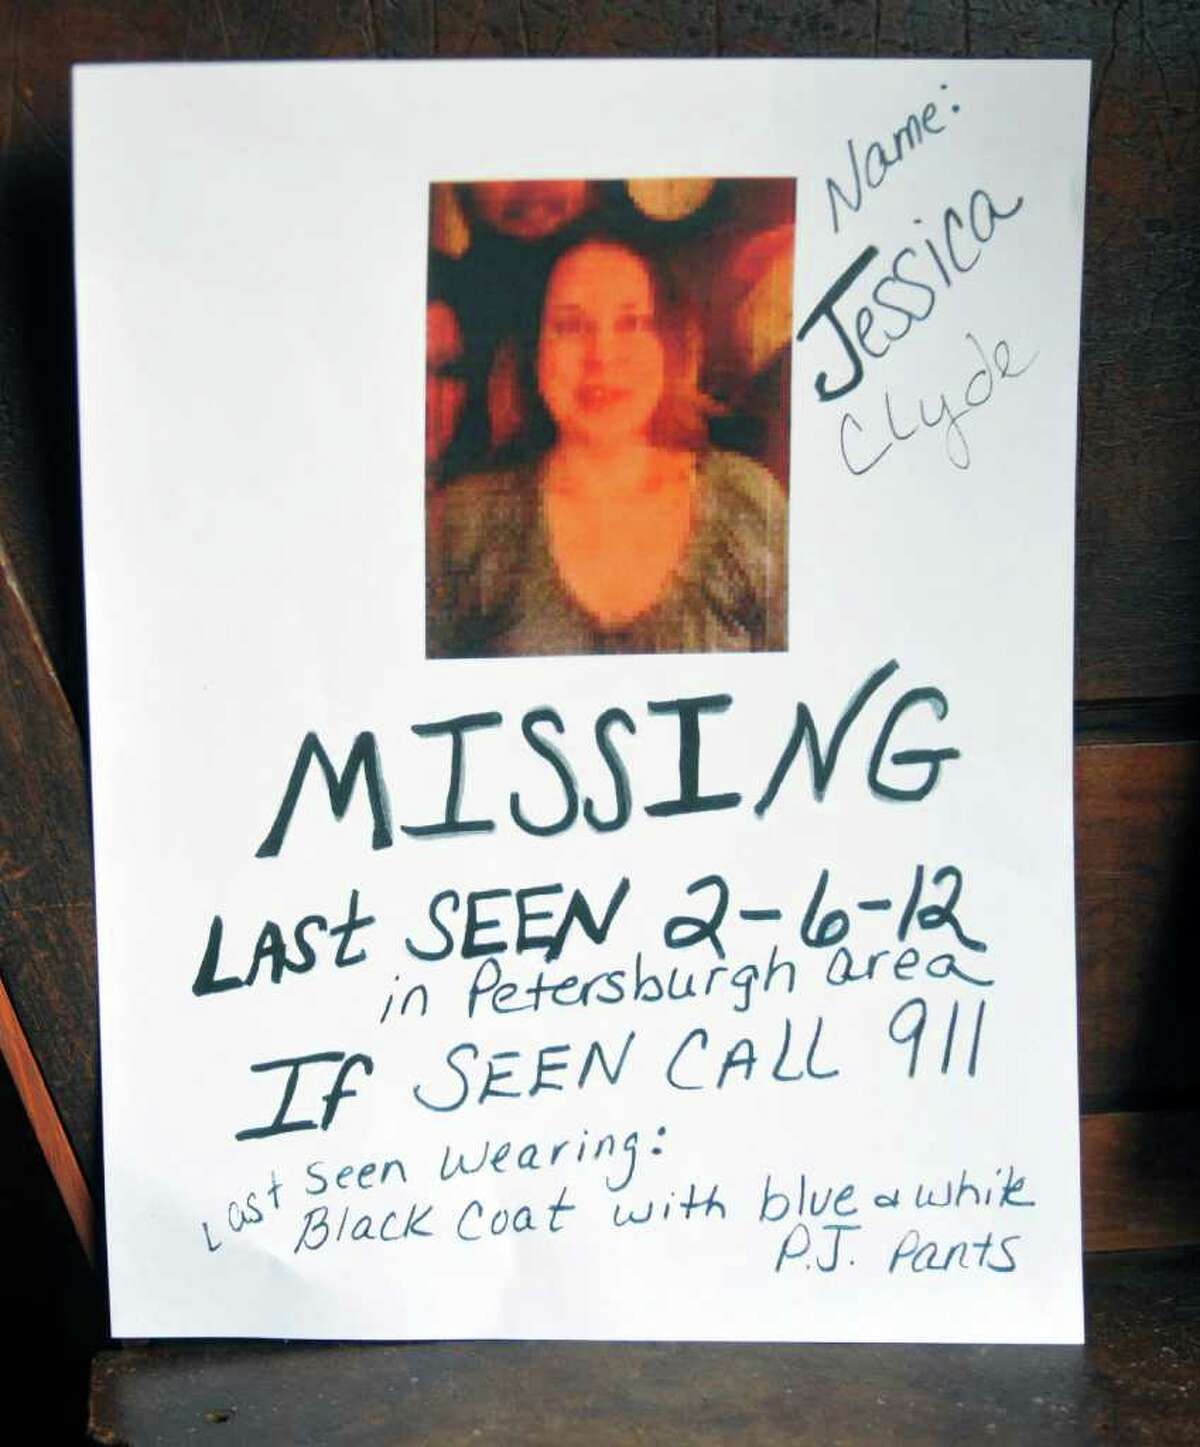 Name:
Jessica
Clyde
MISSING
LASt SEEN 2-6-12
in Petersburgh area
If SEEN CALL 911
Last Seen Wearing:
Black Coat with blue & white
P.J. Pants